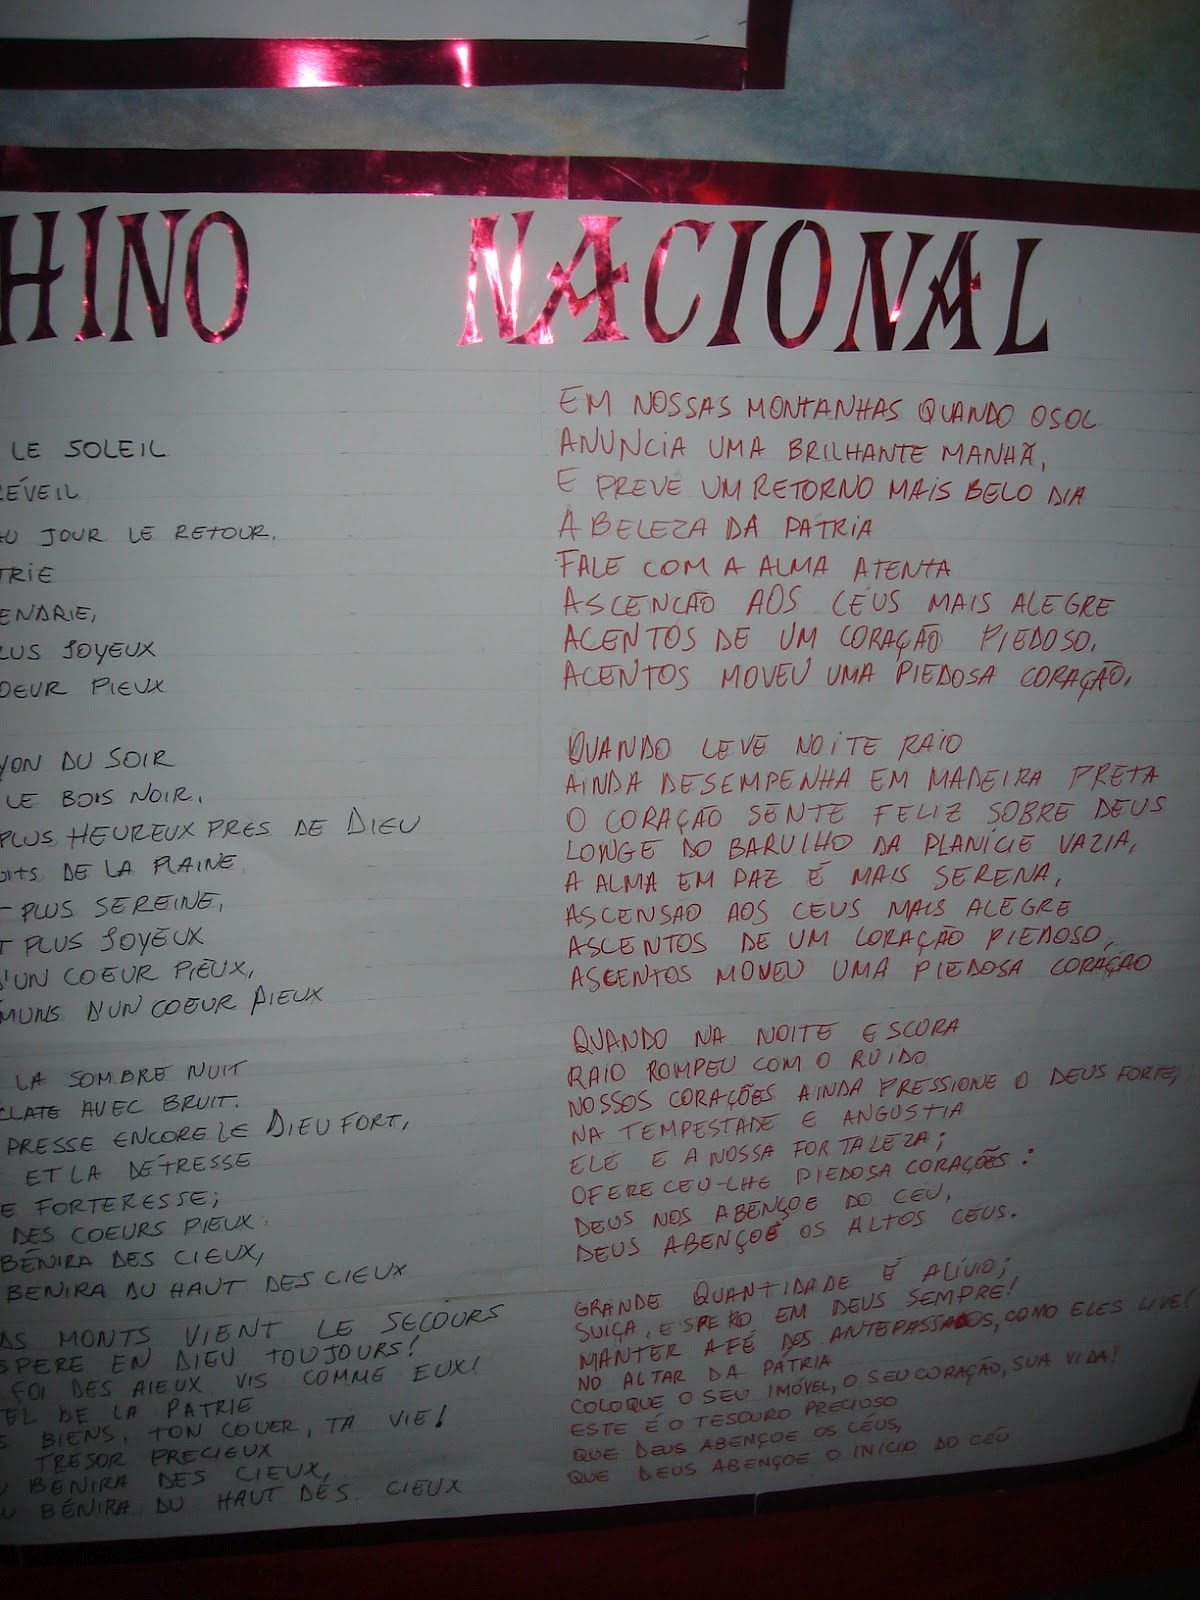 HINO NACIONAL
LE SOLEIL
RÉVEIL
AU JOUR LE RETOUR.
TRIE
ENDRIE,
PLUS JOYEUX
COEUR PIEUX
YON DU SOIR
LE BOIS NOIR.
PLUS HEUREUX PRES DE DIEU
UITS DE LA PLAINE
T PLUS SEREINE,
T PLUS JOYEUX
D'UN COEUR PIEUX,
ÉMUNS D'UN COEUR PIEUX
LA SOMBRE NUIT
CLATE AVEC BRUIT.
PRESSE ENCORE LE DIEU FORT,
ET LA DÉTRESSE
E FORTERESSE;
DES COEURS PIEUX.
BÉNIRA DES CIEUX,
BENIRA DU HAUT DES CIEUX
DAS MONTS VIENT LE SECOURS
SPERE EN DIEU TOUJOURS!
FOI DES AIEUX VIS COMME EUX!
TEL DE LA PATRIE
S BIENS, TON COUER, TA VIE!
TRESOR PRECIEUX
U BENIRA DES CIEUX,
U BÉNIRA DU HAUT DES CIEUX
EM NOSSAS MONTANHAS QUANDO O SOL
ANUNCIA UMA BRILHANTE MANHÃ,
E PREVÊ UM RETORNO MAIS BELO DIA
A BELEZA DA PÁTRIA
FALE COM A ALMA ATENTA
ASCENÇÃO AOS CÉUS MAIS ALEGRE
ACENTOS DE UM CORAÇÃO PIEDOSO,
ACENTOS MOVEU UMA PIEDOSA CORAÇÃO,
QUANDO LEVE NOITE RAIO
AINDA DESEMPENHA EM MADEIRA PRETA
O CORAÇÃO SENTE FELIZ SOBRE DEUS
LONGE DO BARULHO DA PLANÍCIE VAZIA,
A ALMA EM PAZ É MAIS SERENA,
ASCENSÃO AOS CEUS MAIS ALEGRE
ASCENTOS DE UM CORAÇÃO PIEDOSO,
ASCENTOS MOVEU UMA PIEDOSA CORAÇÃO
QUANDO NA NOITE ESCURA
RAIO ROMPEU COM O RUIDO
NOSSOS CORAÇÕES AINDA PRESSIONE O DEUS FORTE;
NA TEMPESTADE E ANGUSTIA
ELE E A NOSSA FORTALEZA;
OFERECEU-LHE PIEDOSA CORAÇÕES:
DEUS NOS ABENÇOE DO CEU,
DEUS ABENÇOE OS ALTOS CEUS.
GRANDE QUANTIDADE É ALÍVIO;
SUIÇA, ESPERO EM DEUS SEMPRE!
MANTER A FÉ DOS ANTEPASSADOS, COMO ELES LIVE!
NO ALTAR DA PÁTRIA
COLOQUE O SEU IMÓVEL, O SEU CORAÇÃO, SUA VIDA!
ESTE É O TESOURO PRECIOSO
QUE DEUS ABENÇOE OS CÉUS,
QUE DEUS ABENÇOE O INICIO DO CÉU